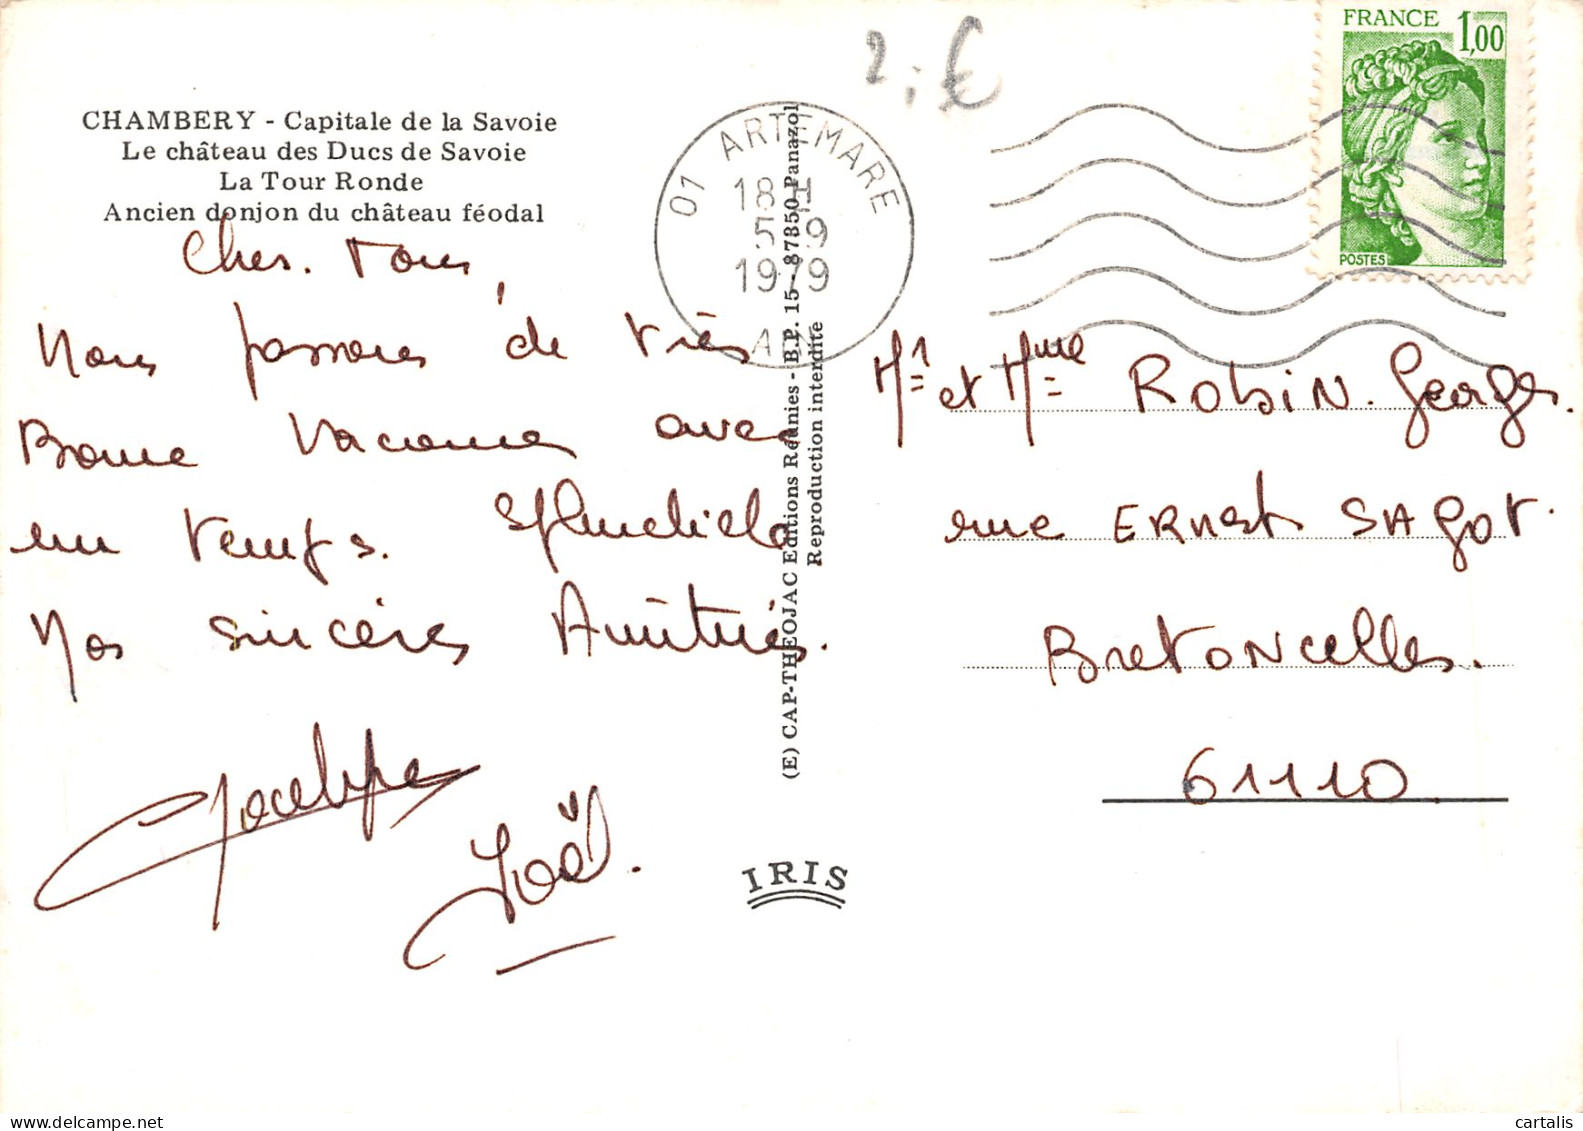 2,€
FRANCE 1,00
POSTES
CHAMBERY - Capitale de la Savoie
Le château des Ducs de Savoie
La Tour Ronde
Ancien donjon du château féodal
01 ARTEMARE
18 H
5-9
1979
AIN
Cher. Tous,
Nous passons de très
Bonne Vacances avec
un temps. splendide
Nos sincères Amitiés.
Joël.
(E) CAP-THEOJAC Editions Réunies - B.P. 15 - 87350 Panazol
Reproduction interdite
IRIS
Mr et Mme Robin. Georges.
rue ERnest SAGOT.
BretoNcelles.
61110
cartalis